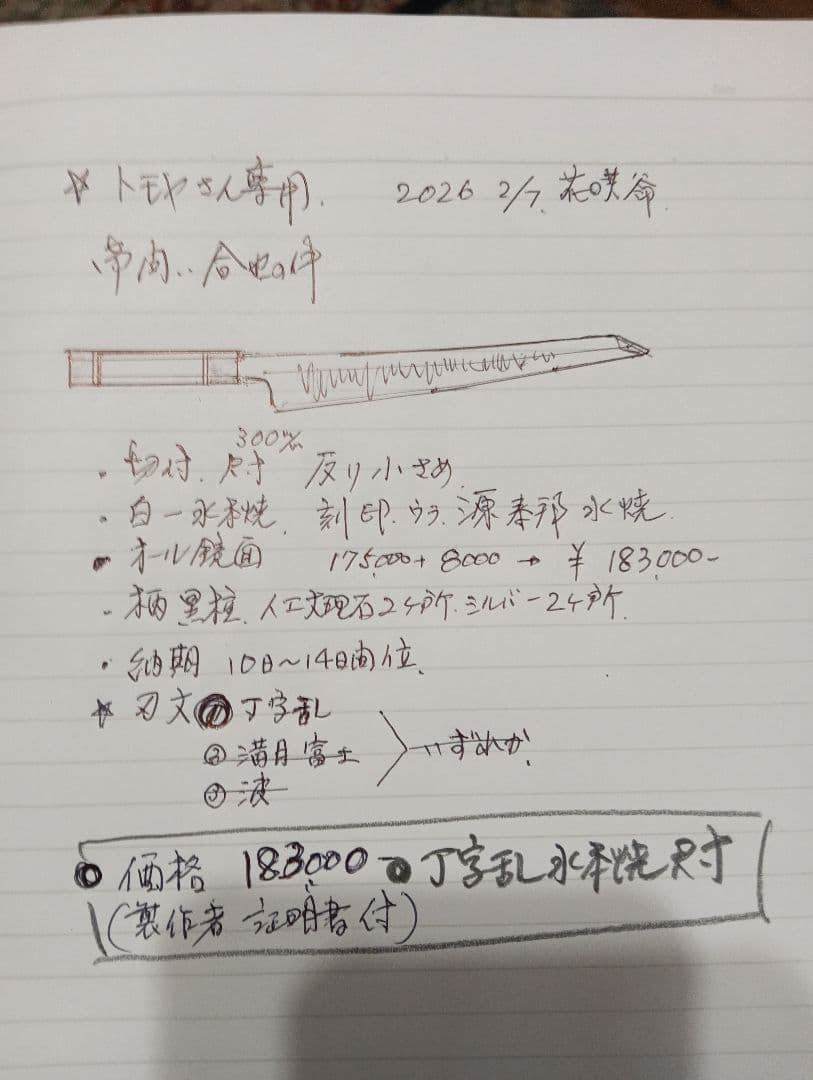 ☆ トモヤさん専用. 2026 2/7. 花咲爺
300%
・切付. 尺寸 反り小さめ
・白一水本焼. 刻印. ウラ. 源泰邦 水焼.
・オール鏡面 175,000+8000→¥183,000-
・柄 黒柱. 人工大理石2ヶ所. シルバー2ヶ所.
・納期 10日〜14日間位.
☆ 刃文 ① 丁字乱
② 満月富士 いずれか
③ 波
● 価格 183,000 - ● 丁字乱水本焼尺寸
(製作者 証明書付)